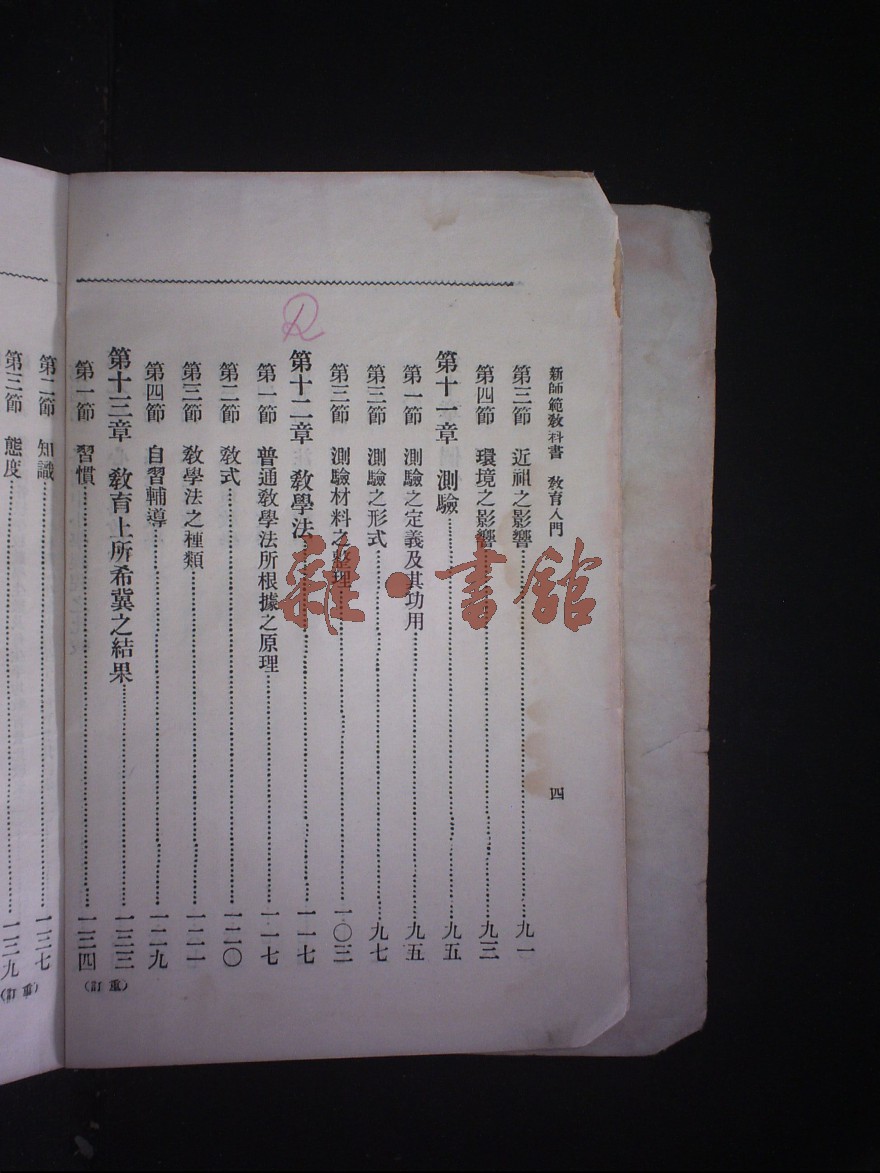 新師範教科書　教育入門　四
第三節　近祖之影響……九一
第四節　環境之影響……九三
第十一章　測驗……九五
第一節　測驗之定義及其功用……九五
第三節　測驗之形式……九七
第三節　測驗材料之整理……一〇三
第十二章　教學法……一一七
第一節　普通教學法所根據之原理……一一七
第二節　教式……一二〇
第三節　教學法之種類……一二一
第四節　自習輔導……一二九
第十三章　教育上所希冀之結果……一三三
第一節　習慣……一三四
（重訂）
第二節　知識……一三七
第三節　態度……一三九
雜·書館